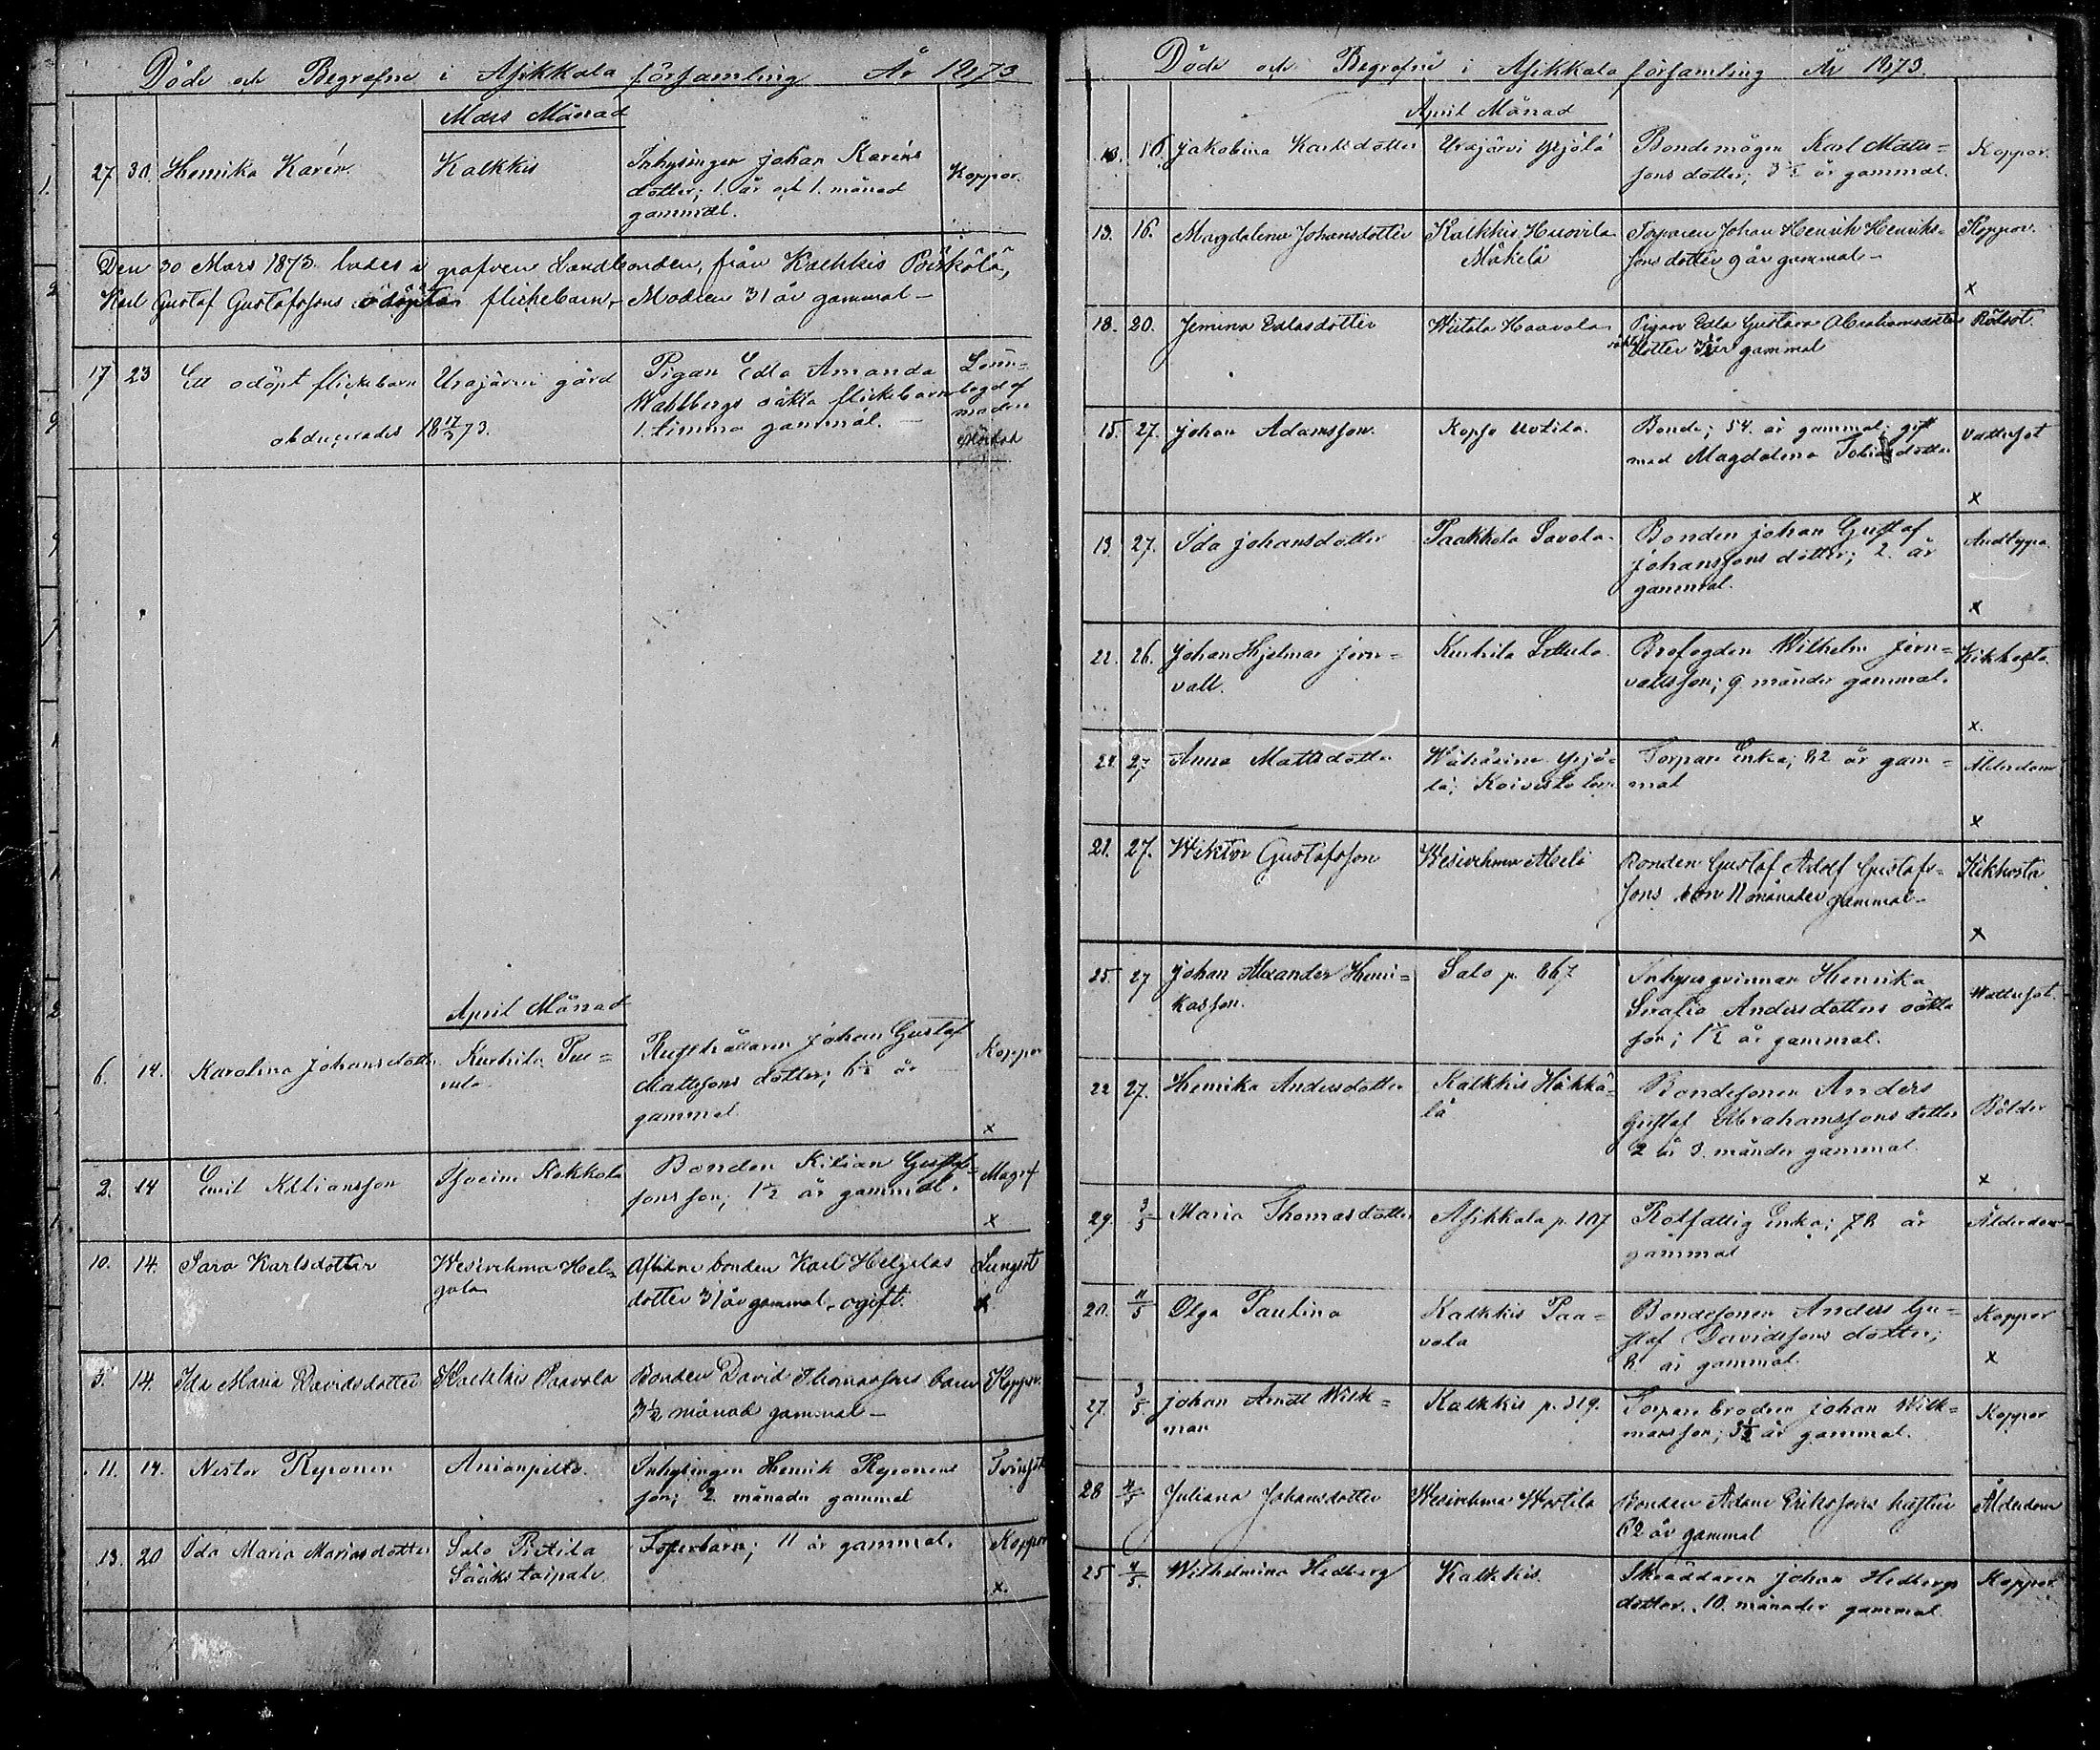 Döde och Begrafne i Asikkala församling År 1873
Mars Månad
27 30. Henrika Karén. Kalkkis Inhysingen Johan Karéns Koppor.
dotter; 1. år och 1. månad
gammal.
Den 30 Mars 1873 lades i grafven Landbonden, från Kalkkis
Karl Gustaf Gustafssons odöpta flickebarn, Modren 31 år gammal –
17 23 Ett odöpt flickebarn Urajärvi gård Pigan Edla Amanda Lönn-
Wahlbergs oäkta flickebarn bagd af
obducerades 18 17/3 73. 1. timma gammal. – modren
mördad
April Månad
6. 14. Karolina Johansdotter Kurhila Rusthållaren Johan Gustaf Koppor
Mattssons dotter; 6½ år
gammal x
2. 14 Emil Kiliansson Isoeini Kokkola Bonden Kilian Gustaf-
sons son; 1½ år gammal. x
10. 14. Sara Karlsdotter Wesivehma Hel- Aflidne bonden Karl Helgelas Lungsot
gala dotter 31 år gammal, ogift. x
3. 14. Ida Maria Davidsdotter Kalkkis Paavola Bonden David Thomassons barn Koppor.
3½ månad gammal –
11. 14. Nestor Reponen Anianpelto. Inhysingen Henrik Reponens
son; 2 månader gammal
13. 20 Ida Maria Mariasdotter Salo Pietila 11 år gammal. Koppor
Sääkstaipale. x.
Döde och Begrafne i Asikkala församling År 1873.
April Månad
13. 16. Jakobina Karlsdotter Urajärvi Yrjölä Bondemågen Karl Matts- Koppor.
sons dotter; 3½ år gammal.
13. 16. Magdalena Johansdotter Kalkkis Huovila Torparen Johan Henrik Henriks- Koppor.
Mäkelä sons dotter 9 år gammal – x
18. 20. Jemina Edlasdotter Wistola Haavola Pigan Edla Gustava Abrahamsdotters Rödsot.
oäkta dotter 3½ år gammal
15. 27. Johan Adamsson. Kopso Uotila. Bonde; 54. år gammal; gift Vattusot
med Magdalena Tobiasdotter x
13. 27. Ida Johansdotter Paakkola Savola. Bonden Johan Gustaf Andtyppa.
Johanssons dotter; 2. år
gammal. x
22. 26. Johan Hjelmar Jern- Kurhila Brofogden Wilhelm Jern- Kikhosta.
vall. valls son; 9 månder gammal. x.
24. 27. Anna Mattsdotter Wähäsine Yrjö- Torpare Enka; 82 år gam- Ålderdom
lä; Koivisto mal x
21. 27. Wiktor Gustafsson Wesivehma Bonden Gustaf Adolf Gustafs- Kikhosta
sons son 11 månader gammal – x
25. 27 Johan Alexander Henri- Salo p. 267 Inhysesqvinnan Henrika Wattusot.
kasson. Serafia Andersdotters oäkta
son; 1½ år gammal.
22 27. Henrika Andersdotter Kalkkis Häkkä- Bondesonen Anders Bölder
lä Gustaf Abrahamssons dotter
2 år 3. månder gammal x
29. 3/5 Maria Thomasdotter Asikkala p. 107 Rotfattig Enka; 78 år Ålderdom
gammal
20. 11/5 Olga Paulina Kalkkis Paa- Bondesonen Anders Gu- Koppor
vola staf Davidssons dotter;
2. år gammal. x
27. 3/5. Johan Arndt Wilk- Kalkkis p. 319. Torpare brodren Johan Wilk- Koppor
man mans son; 5½ år gammal.
28 4/5 Juliana Johansdotter Wesivehma Wortila Bonden Adam Erikssons hustru Ålderdom
62 år gammal
25 4/5. Wilhelmina Hedberg Kalkkis. Skräddaren Johan Hedbergs Koppor.
dotter. 10. månader gammal